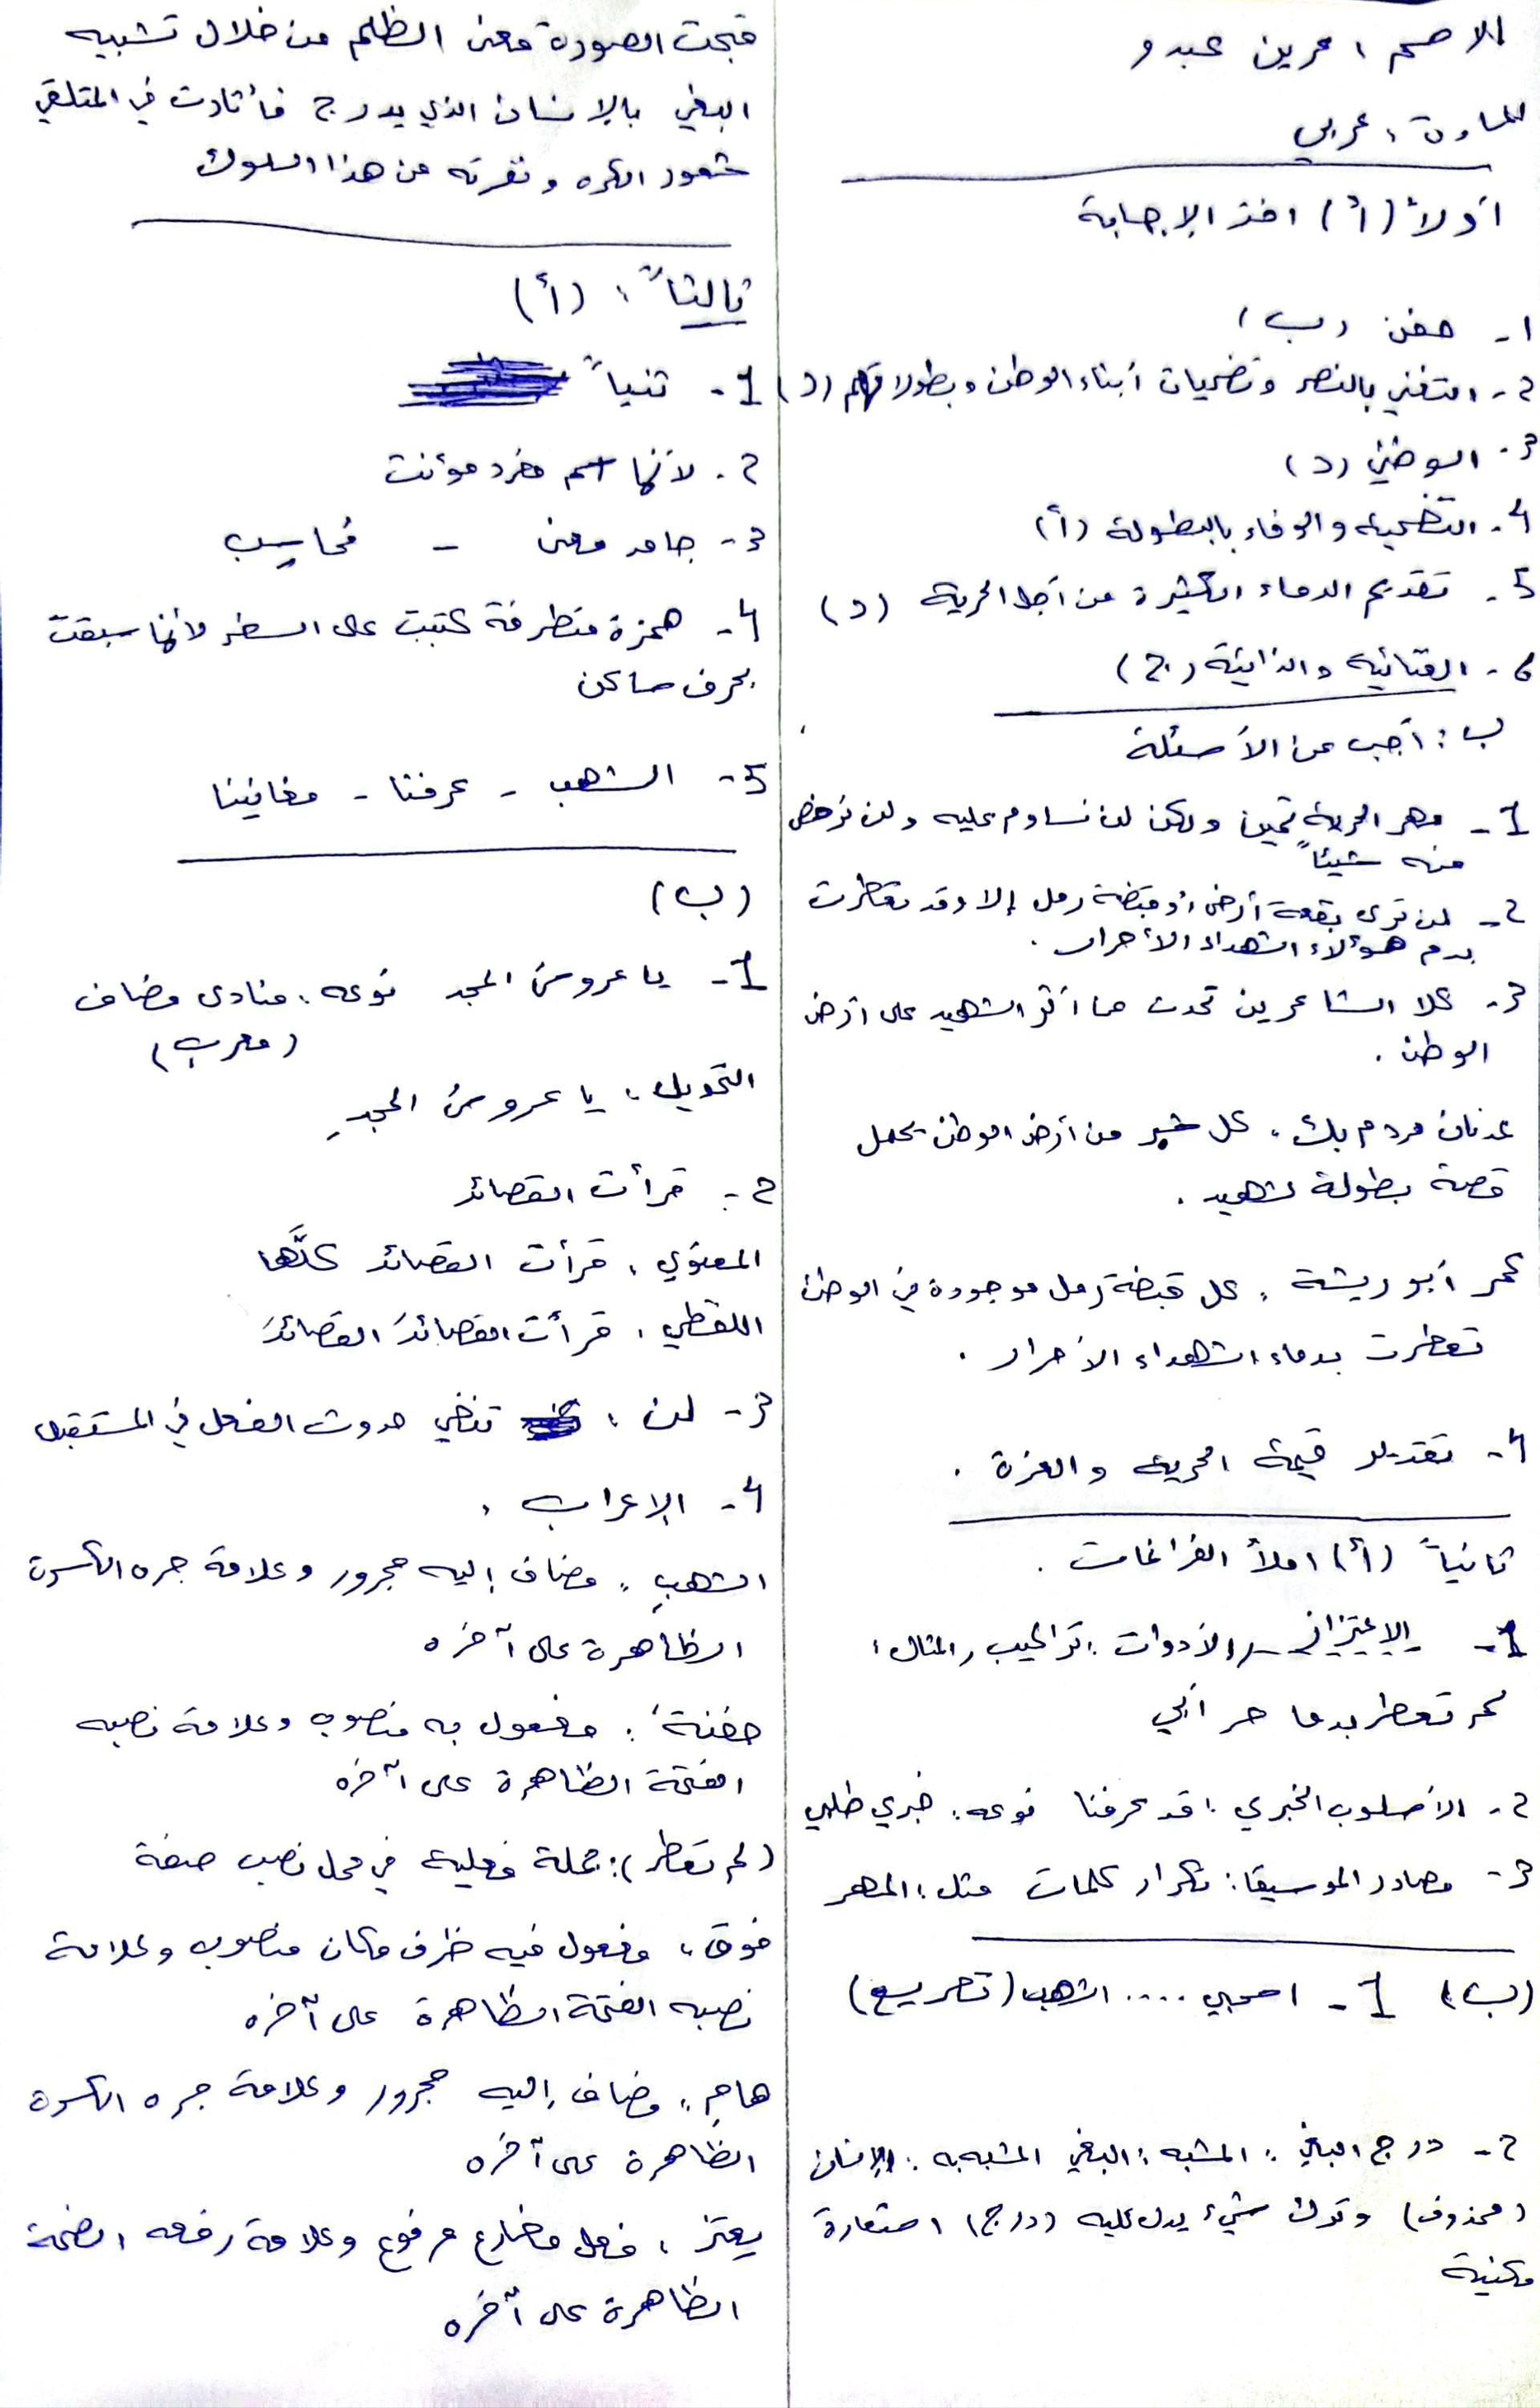 الاسم : مرين عبدو
المادة : عربي
أولاً (أ) اختر الإجابة
1- حفن (ب)
2- التغني بالنصر وتضحيات أبناء الوطن وبطولاتهم (د)
3- الوطني (د)
4- التضحية والوفاء بالبطولة (أ)
5- تقديم الدماء الكثيرة من أجل الحرية (د)
6- الغنائية والذاتية (ج)
ب : أجب عن الأسئلة
1- مهر الحرية ثمين ولكن لن نساوم عليه ولن نرخص
منه شيئاً
2- لن ترى بقعة أرض أو قبضة رمل إلا وقد تعطرت
بدم هؤلاء الشهداء الأحرار .
3- كلا الشاعرين تحدث عن أثر الشهيد على أرض
الوطن .
عدنان مردم بك : كل شبر من أرض الوطن يحمل
قصة بطولة لشهيد .
عمر أبو ريشة : كل قبضة رمل موجودة في الوطن
تعطرت بدماء الشهداء الأحرار .
4- تقدير قيمة الحرية والعزة .
ثانياً (أ) املأ الفراغات .
1- الاعتزاز - الأدوات : تراكيب ، المثال :
لم تعطر بدما حر أبي
2- الأسلوب الخبري : قد عرفنا نوعه : خبري طلبي
3- مصادر الموسيقا : تكرار كلمات مثل : المهر
(ب) 1- اسحبي .... الشهب (تصريع)
2- درج البغي : المشبه : البغي المشبه به : الإنسان
(محذوف) وترك شيء يدل عليه (درج) استعارة
مكنية
قبحت الصورة معنى الظلم من خلال تشبيه
البغي بالإنسان الذي يدرج فأثارت في المتلقي
شعور الكره ونفرته من هذا السلوك
ثالثاً : (أ)
1- تنياً
2- لأنها اسم مفرد مؤنث
3- جامد معنى - محاسب
4- همزة متطرفة كتبت على السطر لأنها سبقت
بحرف ساكن
5- الشهب - عرفنا - مغانينا
(ب)
1- يا عروسَ المجد نوعه : منادى مضاف
(معرب)
التحويل : يا عروسَ المجدِ
2- قرأت القصائد
المعنوي : قرأت القصائد كلَّها
اللفظي : قرأت القصائدَ القصائدَ
3- لن : تنفي حدوث الفعل في المستقبل
4- الإعراب :
الشهبِ : مضاف إليه مجرور وعلامة جره الكسرة
الظاهرة على آخره
حفنةً : مفعول به منصوب وعلامة نصبه
الفتحة الظاهرة على آخره
(لم تعطر) : جملة فعلية في محل نصب صفة
فوق : مفعول فيه ظرف مكان منصوب وعلامة
نصبه الفتحة الظاهرة على آخره
هامِ : مضاف إليه مجرور وعلامة جره الكسرة
الظاهرة على آخره
يعتز : فعل مضارع مرفوع وعلامة رفعه الضمة
الظاهرة على آخره